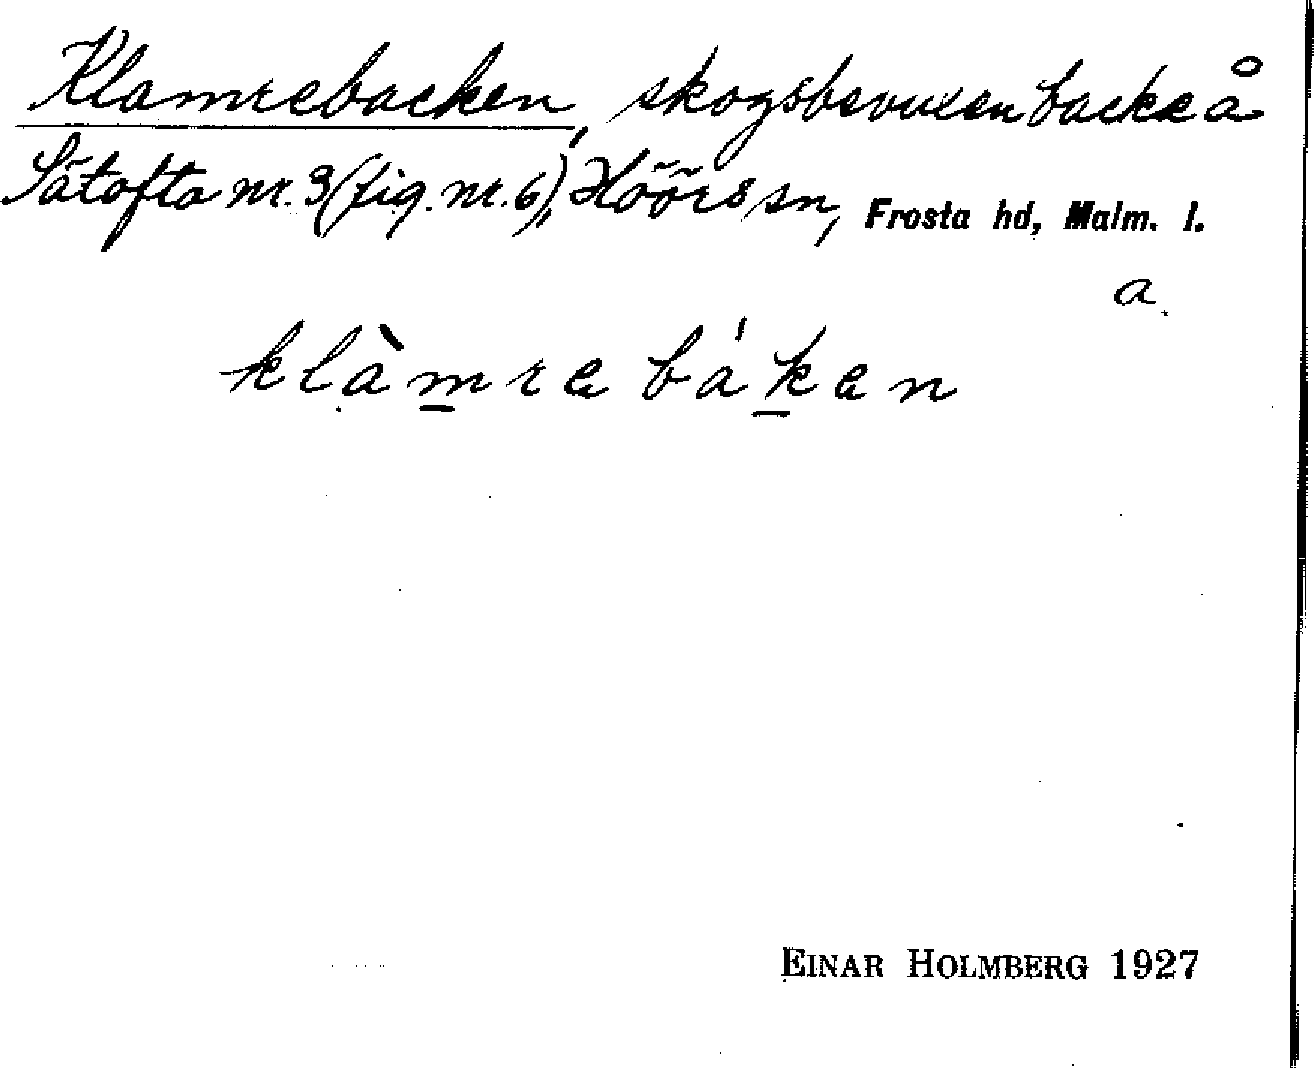 Klamrebacken, skogsbevuxen backe å
Sätofta nr. 3 (fig. nr. 6), Höörs sn, Frosta hd, Malm. l.
a.
klàmrebákен
EINAR HOLMBERG 1927